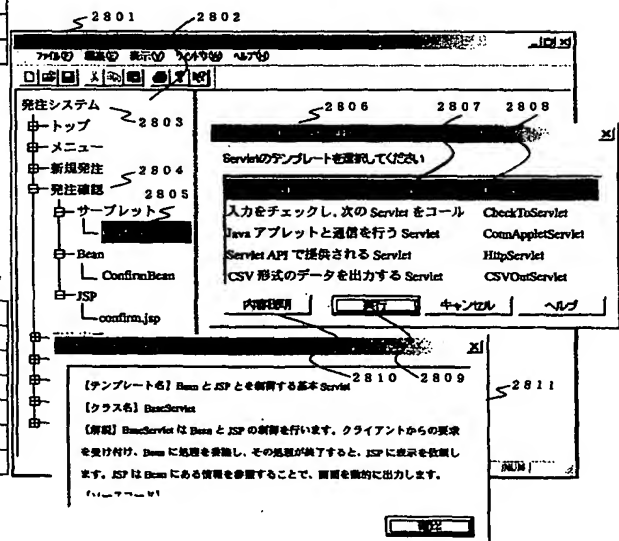 2801
2802
ファイル(F) 編集(E) 表示(V) ウィンドウ(W) ヘルプ(H)
発注システム
2803
トップ
メニュー
新規発注
2804
発注確認
2805
サーブレット
Bean
ConfirmBean
JSP
confirm.jsp
2806
2807
2808
Servletのテンプレートを選択してください
入力をチェックし、次の Servlet をコール CheckToServlet
Java アプレットと通信を行う Servlet CommAppletServlet
Servlet API で提供される Servlet HttpServlet
CSV 形式のデータを出力する Servlet CSVOutServlet
内容説明 実行 キャンセル ヘルプ
2810
2809
2811
【テンプレート名】Bean と JSP とを制御する基本 Servlet
【クラス名】BaseServlet
【解説】BaseServlet は Bean と JSP の制御を行います。クライアントからの要求
を受け付け、Bean に処理を委譲し、その処理が終了すると、JSP に表示を依頼し
ます。JSP は Bean にある情報を参照することで、画面を動的に出力します。
【ソースコード】
NUM